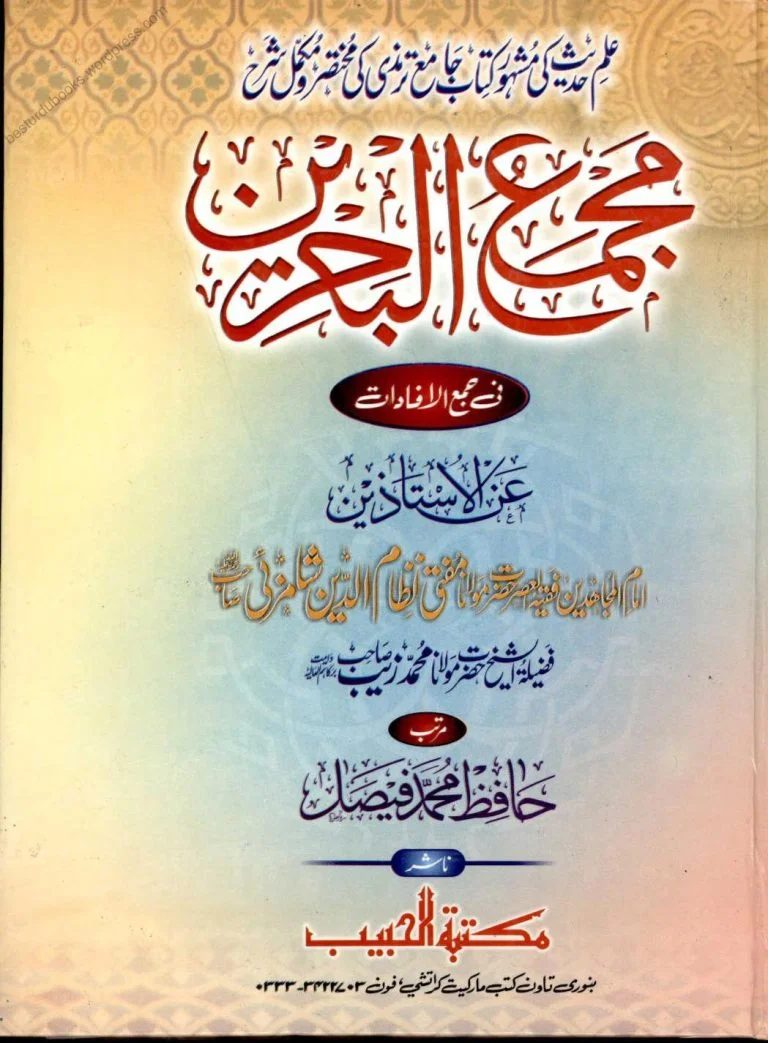 علمِ حدیث کی مشہور کتاب جامع ترمذی کی مختصر و مکمل شرح
مجمع البحرین
فی جمع الافادات
عَن الاُستاذین
امام المجاہدین فقیہ العصر حضرت مولانا مفتی نظام الدین شامزئی صاحب
فضیلۃ الشیخ حضرت مولانا محمد زیب صاحب دامت برکاتہم العالیہ
مرتب
حافظ محمد فیصل
ناشر
مکتبۃ الحبیب
بنوری ٹاون کتب مارکیٹ کراتشی، فون ۰۳۳۳-۳۴۲۲۷۰۳
besturdubooks.wordpress.com